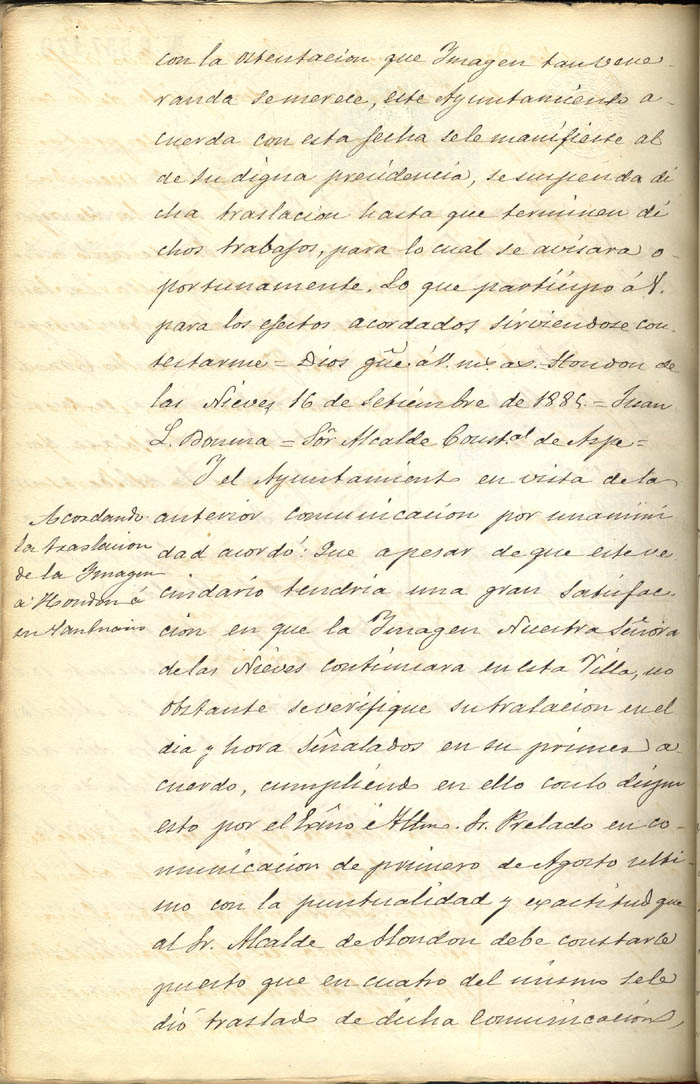 con la ostentacion que Imagen tan vene-
randa se merece, este Ayuntamiento a-
cuerda con esta fecha se le manifieste al
de su digna presidencia, se suspenda di
cha traslacion hasta que terminen di
chos trabajos, para lo cual se avisara o-
portunamente. Lo que participo á V.
para los efectos acordados sirviendose con-
testarme = Dios gũe á V. m.s a.s = Hondon de
las Nieves 16 de Setiembre de 188 = Juan
L. = Sõr Alcalde Const.al de Aspe =
Y el Ayuntamient en vista de la
Acordando
la traslacion
de la Imagen
a Hondon á
su Santuario
anterior comunicacion por unanimi
dad acordó: Que apesar de que este ve
cindario tendria una gran satisfac-
cion en que la Imagen Nuestra Señora
de las Nieves continuara en esta Villa, no
obstante se verifique su tralacion en el
dia y hora señalados en su primer a-
cuerdo, cumpliendo en ello con lo dispu
esto por el Exm̃o é Illmo. Sr. Prelado en co-
municacion de primero de Agosto ulti-
mo con la puntualidad y exactitud que
al Sr. Alcalde de Hondon debe constarle
puesto que en cuatro del mismo se le
dió traslado de dicha comunicacion,